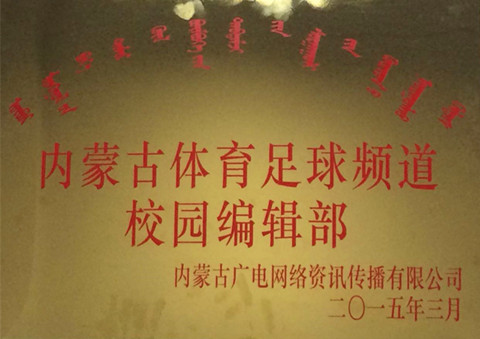 内蒙古体育足球频道
校园编辑部
内蒙古广电网络资讯传播有限公司
二〇一五年三月